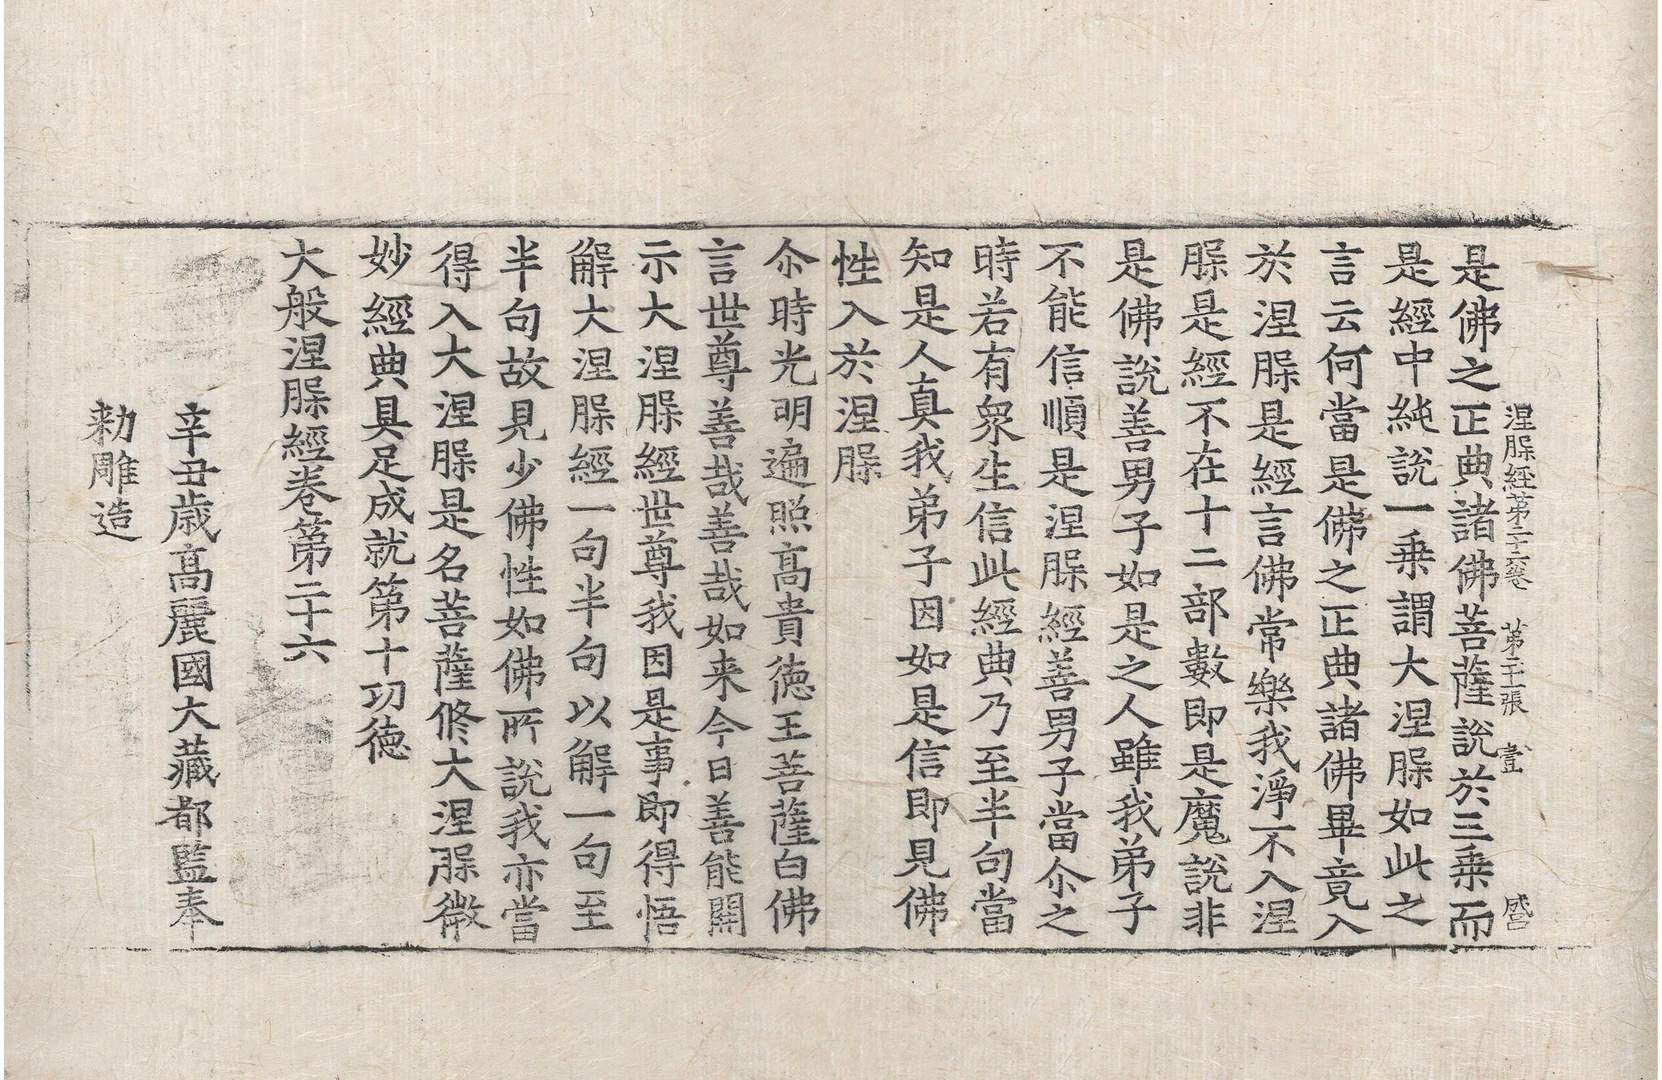 涅槃經第二十六卷
是佛之正典諸佛菩薩說於三乗而
是經中純說一乗謂大涅槃如此之
言云何當是佛之正典諸佛畢竟入
於涅槃是經言佛常樂我淨不入涅
槃是經不在十二部數即是魔說非
是佛說善男子如是之人雖我弟子
不能信順是涅槃經善男子當尒之
時若有衆生信此經典乃至半句當
知是人真我弟子因如是信即見佛
性入於涅槃
尒時光明遍照髙貴德王菩薩白佛
言世尊善哉善哉如来今日善能開
示大涅槃經世尊我因是事即得悟
解大涅槃經一句半句以解一句至
半句故見少佛性如佛所說我亦當
得入大涅槃是名菩薩修大涅槃微
妙經典具足成就第十功德
大般涅槃經卷第二十六
辛丑歲髙麗國大藏都監奉
勑雕造